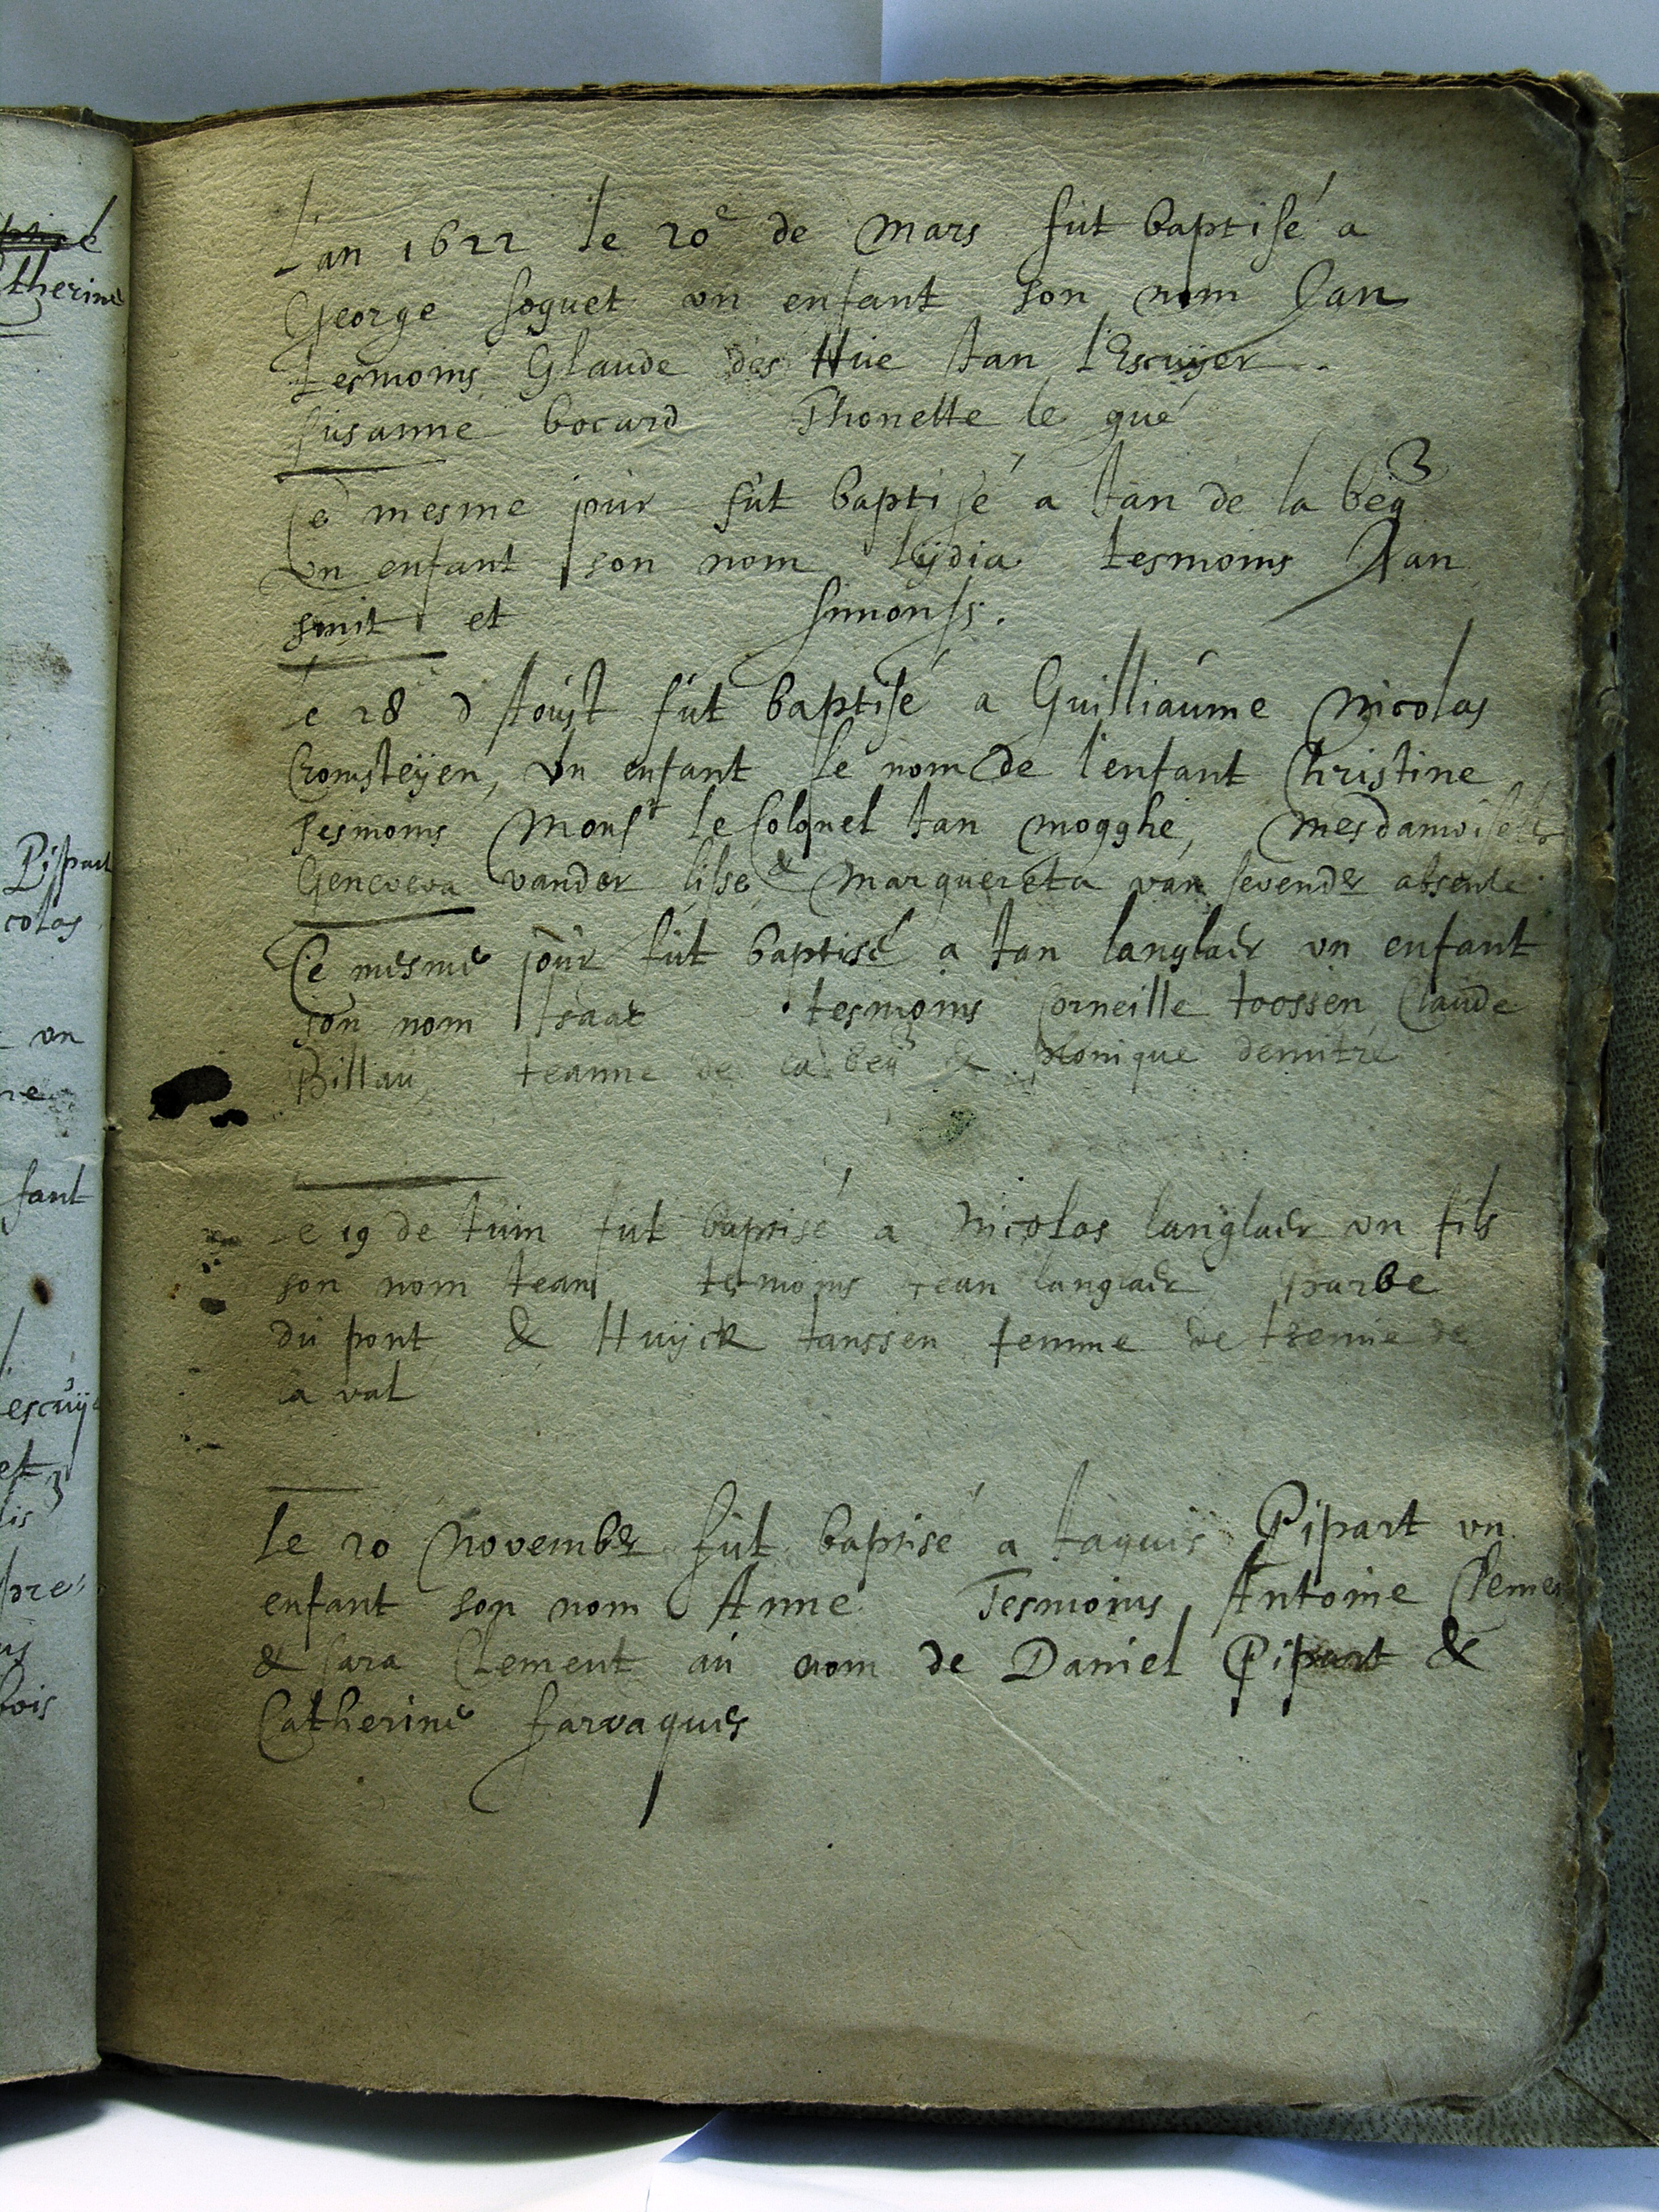 L'an 1622 le 20e de Mars fut baptisé a
George soguet vn enfant son nom Jan
tesmoins Glaude des Hue Jan l'Escuÿer.
susanne bocard Thonette le gué
Ce mesme jour fut baptisé a Jan de la beÿ
vn enfant son nom Lÿdia tesmoins Jan
smit et simonss.
Le 28 d'Aoust fut baptisé a Guilliaume Nicolas
Cromsteÿen, vn enfant le nom de l'enfant Christine
tesmoins Monsr le Colonel Jan mogghe, mesdamoiselles
Geneveva vander lisse & Marquereta van sevender absente
Ce mesme jour fut baptisé a Jan langlaer vn enfant
son nom Isaac tesmoins Corneille Joossen Claude
Billau, Jeanne de la beÿ & Monique demitre
Le 19 de Juin fut baptisé a Nicolas langlaer vn fils
son nom Jean tesmoins Jean langlaer, barbe
du pont & Huÿck Janssen femme de de
la val
Le 20 November fut baptisé a Jaques Pipart vn
enfant son nom Anne Tesmoins Antoine Clemen
& sara Clement au nom de Daniel Pipart &
Catherine farvaques
Catherine
Pipart
colas
vn
re
fant
escuÿ
et
lis
pre
bois